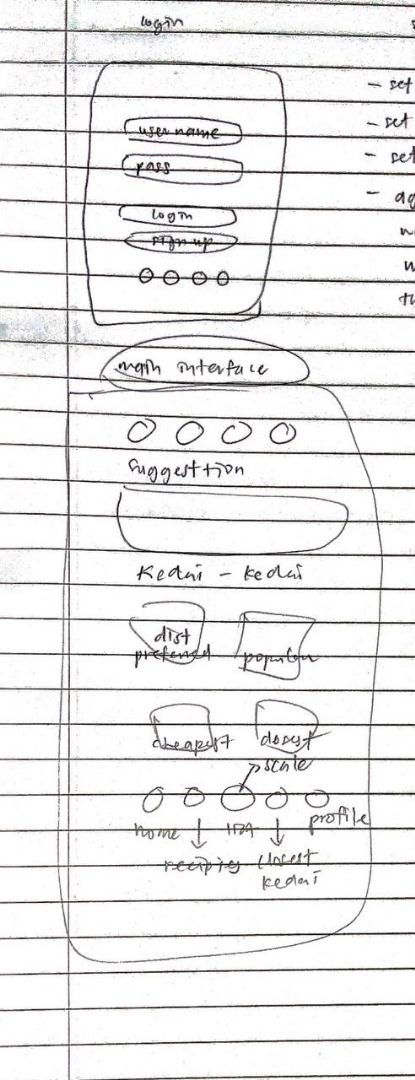 login
- set
- set
- set
user name
pass
login
sign up
main interface
suggesttion
Kedai - kedai
dist
preferred
popular
cheapest
closest
scale
home
profile
recipies
closest
kedai